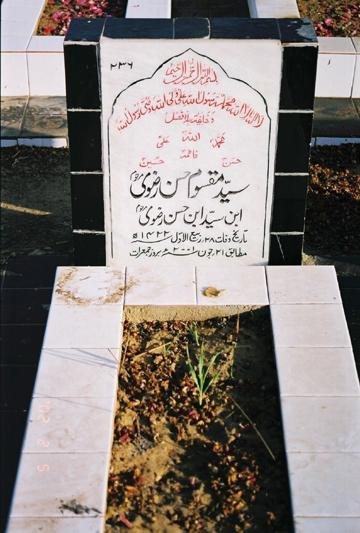 ۲۳۶
بسم اللہ الرحمن الرحیم
لا الہ الا اللہ محمد رسول اللہ علی ولی اللہ وصی رسول اللہ
وخلیفتہ بلا فصل
محمدؐ اللہ علیؑ
فاطمہؑ
حسنؑ حسینؑ
سید مقسوم حسن رضوی
ابن سید ابن حسن رضوی
تاریخ وفات ۲۸؍ ربیع الاول ۱۴۲۲ھ
مطابق ۲۱؍ جون ۲۰۰۱ء بروز جمعرات